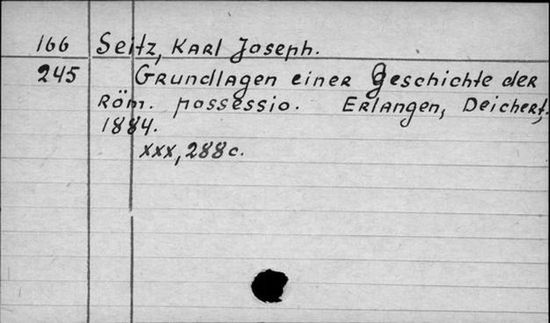 166 Seitz, Karl Joseph.
245 Grundlagen einer Geschichte der
Röm. possessio. Erlangen, Deichert,
1884.
xxx, 288c.